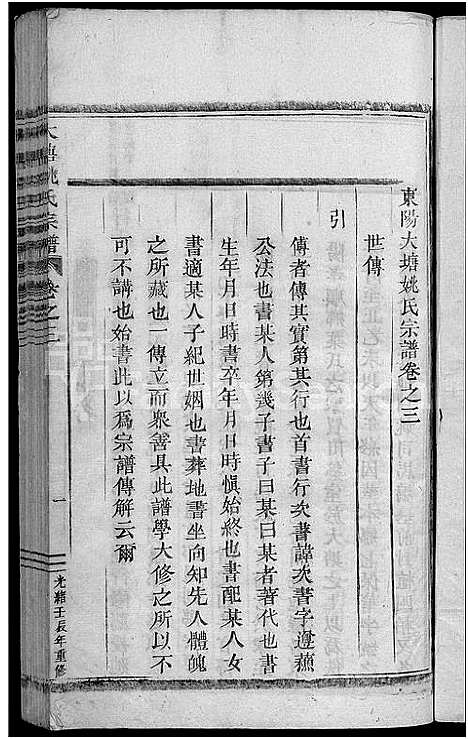 東陽大塘姚氏宗譜卷之三
世傳
引
傳者傳其實第其行也首書行次書諱次書字遵蘇
公法也書某人第幾子書子曰某曰某者著代也書
生年月日時書卒年月日時愼始終也書配某人女
書適某人子紀世姻也書葬地書坐向知先人體魄
之所藏也一傳立而衆善具此譜學大修之所以不
可不講也始書此以爲宗譜傳解云爾
大塘姚氏宗譜 卷之三
一
光緒壬辰年重修